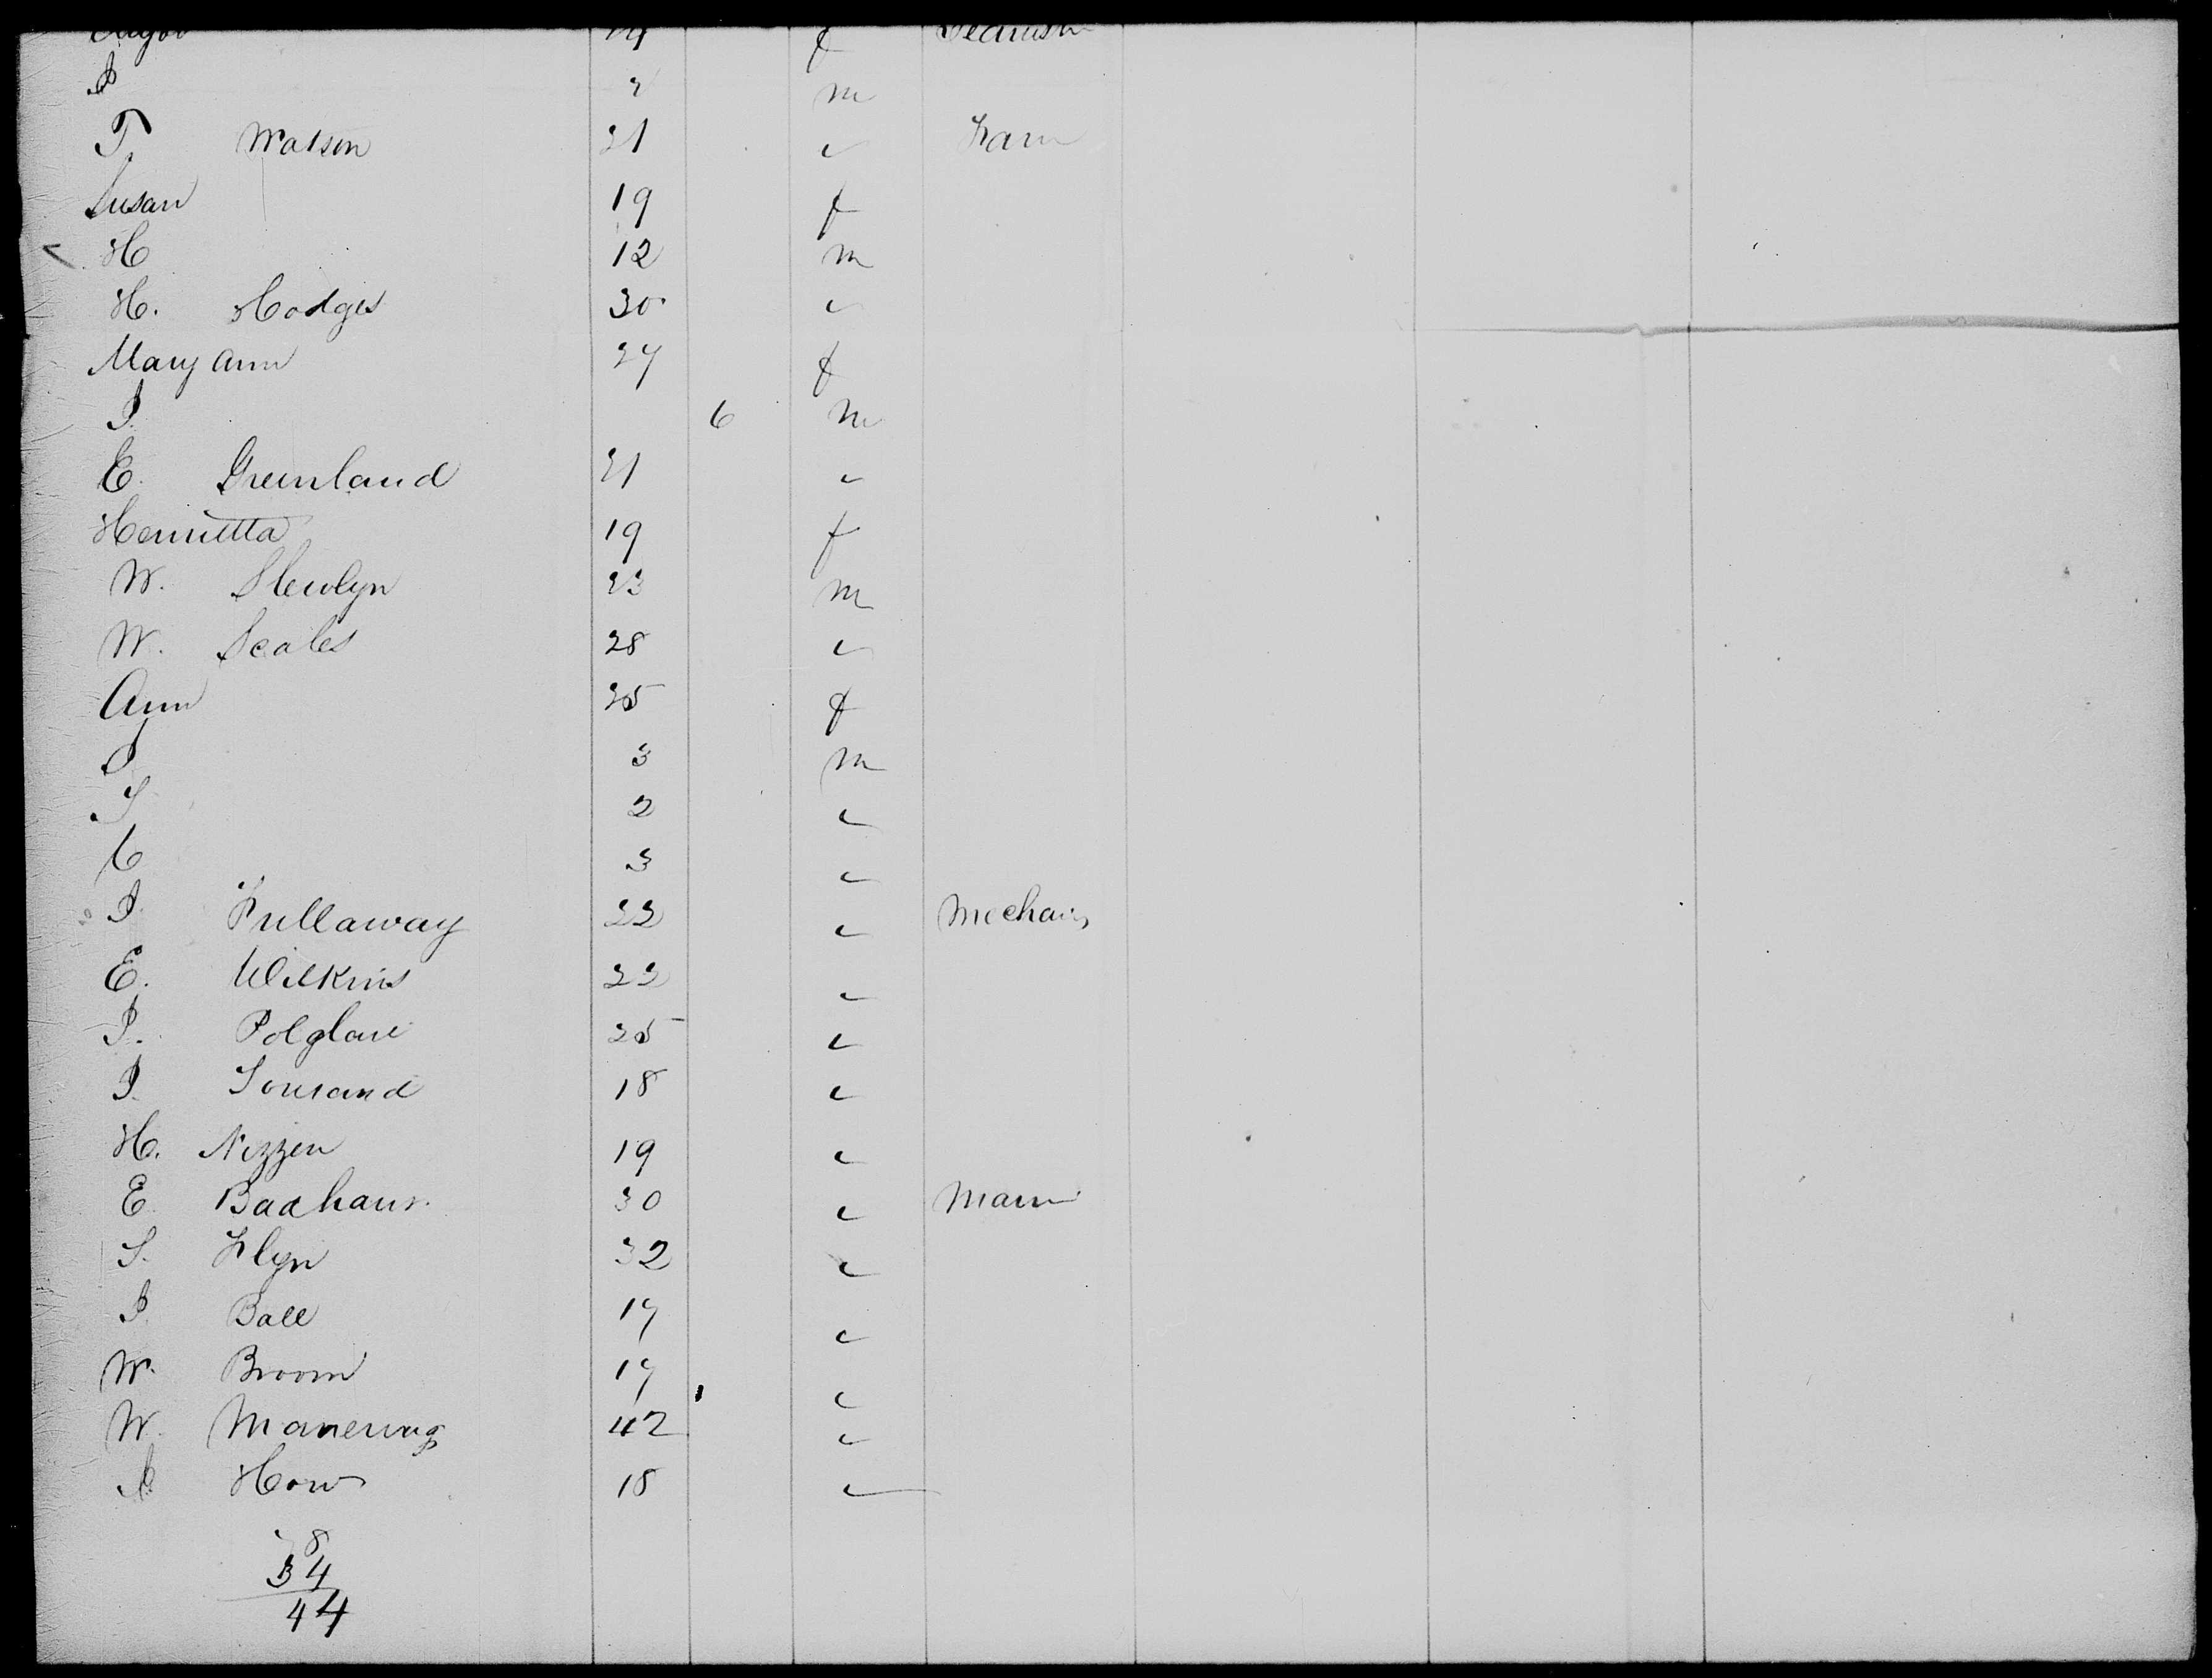 m
T. Watson 21 " Farm
Susan 19 f
H 12 m
H. Hodges 30 "
Mary Ann 27 f
J. 6 m
E. Greenland 21 "
Henrietta 19 f
W. Slewlyn 23 m
W. Scales 28 "
Ann 25 f
J 3 m
S 2 "
C 3 "
J. Fullaway 22 " Mechanic
E. Wilkins 22 "
J. Polglase 25 "
J. 18 "
H. Nizzen 19 "
E. 30 "
S. Flyn 32 "
J. Ball 17 "
W. Broom 17 "
W. Manering 42 "
How 18 "
8
34
44